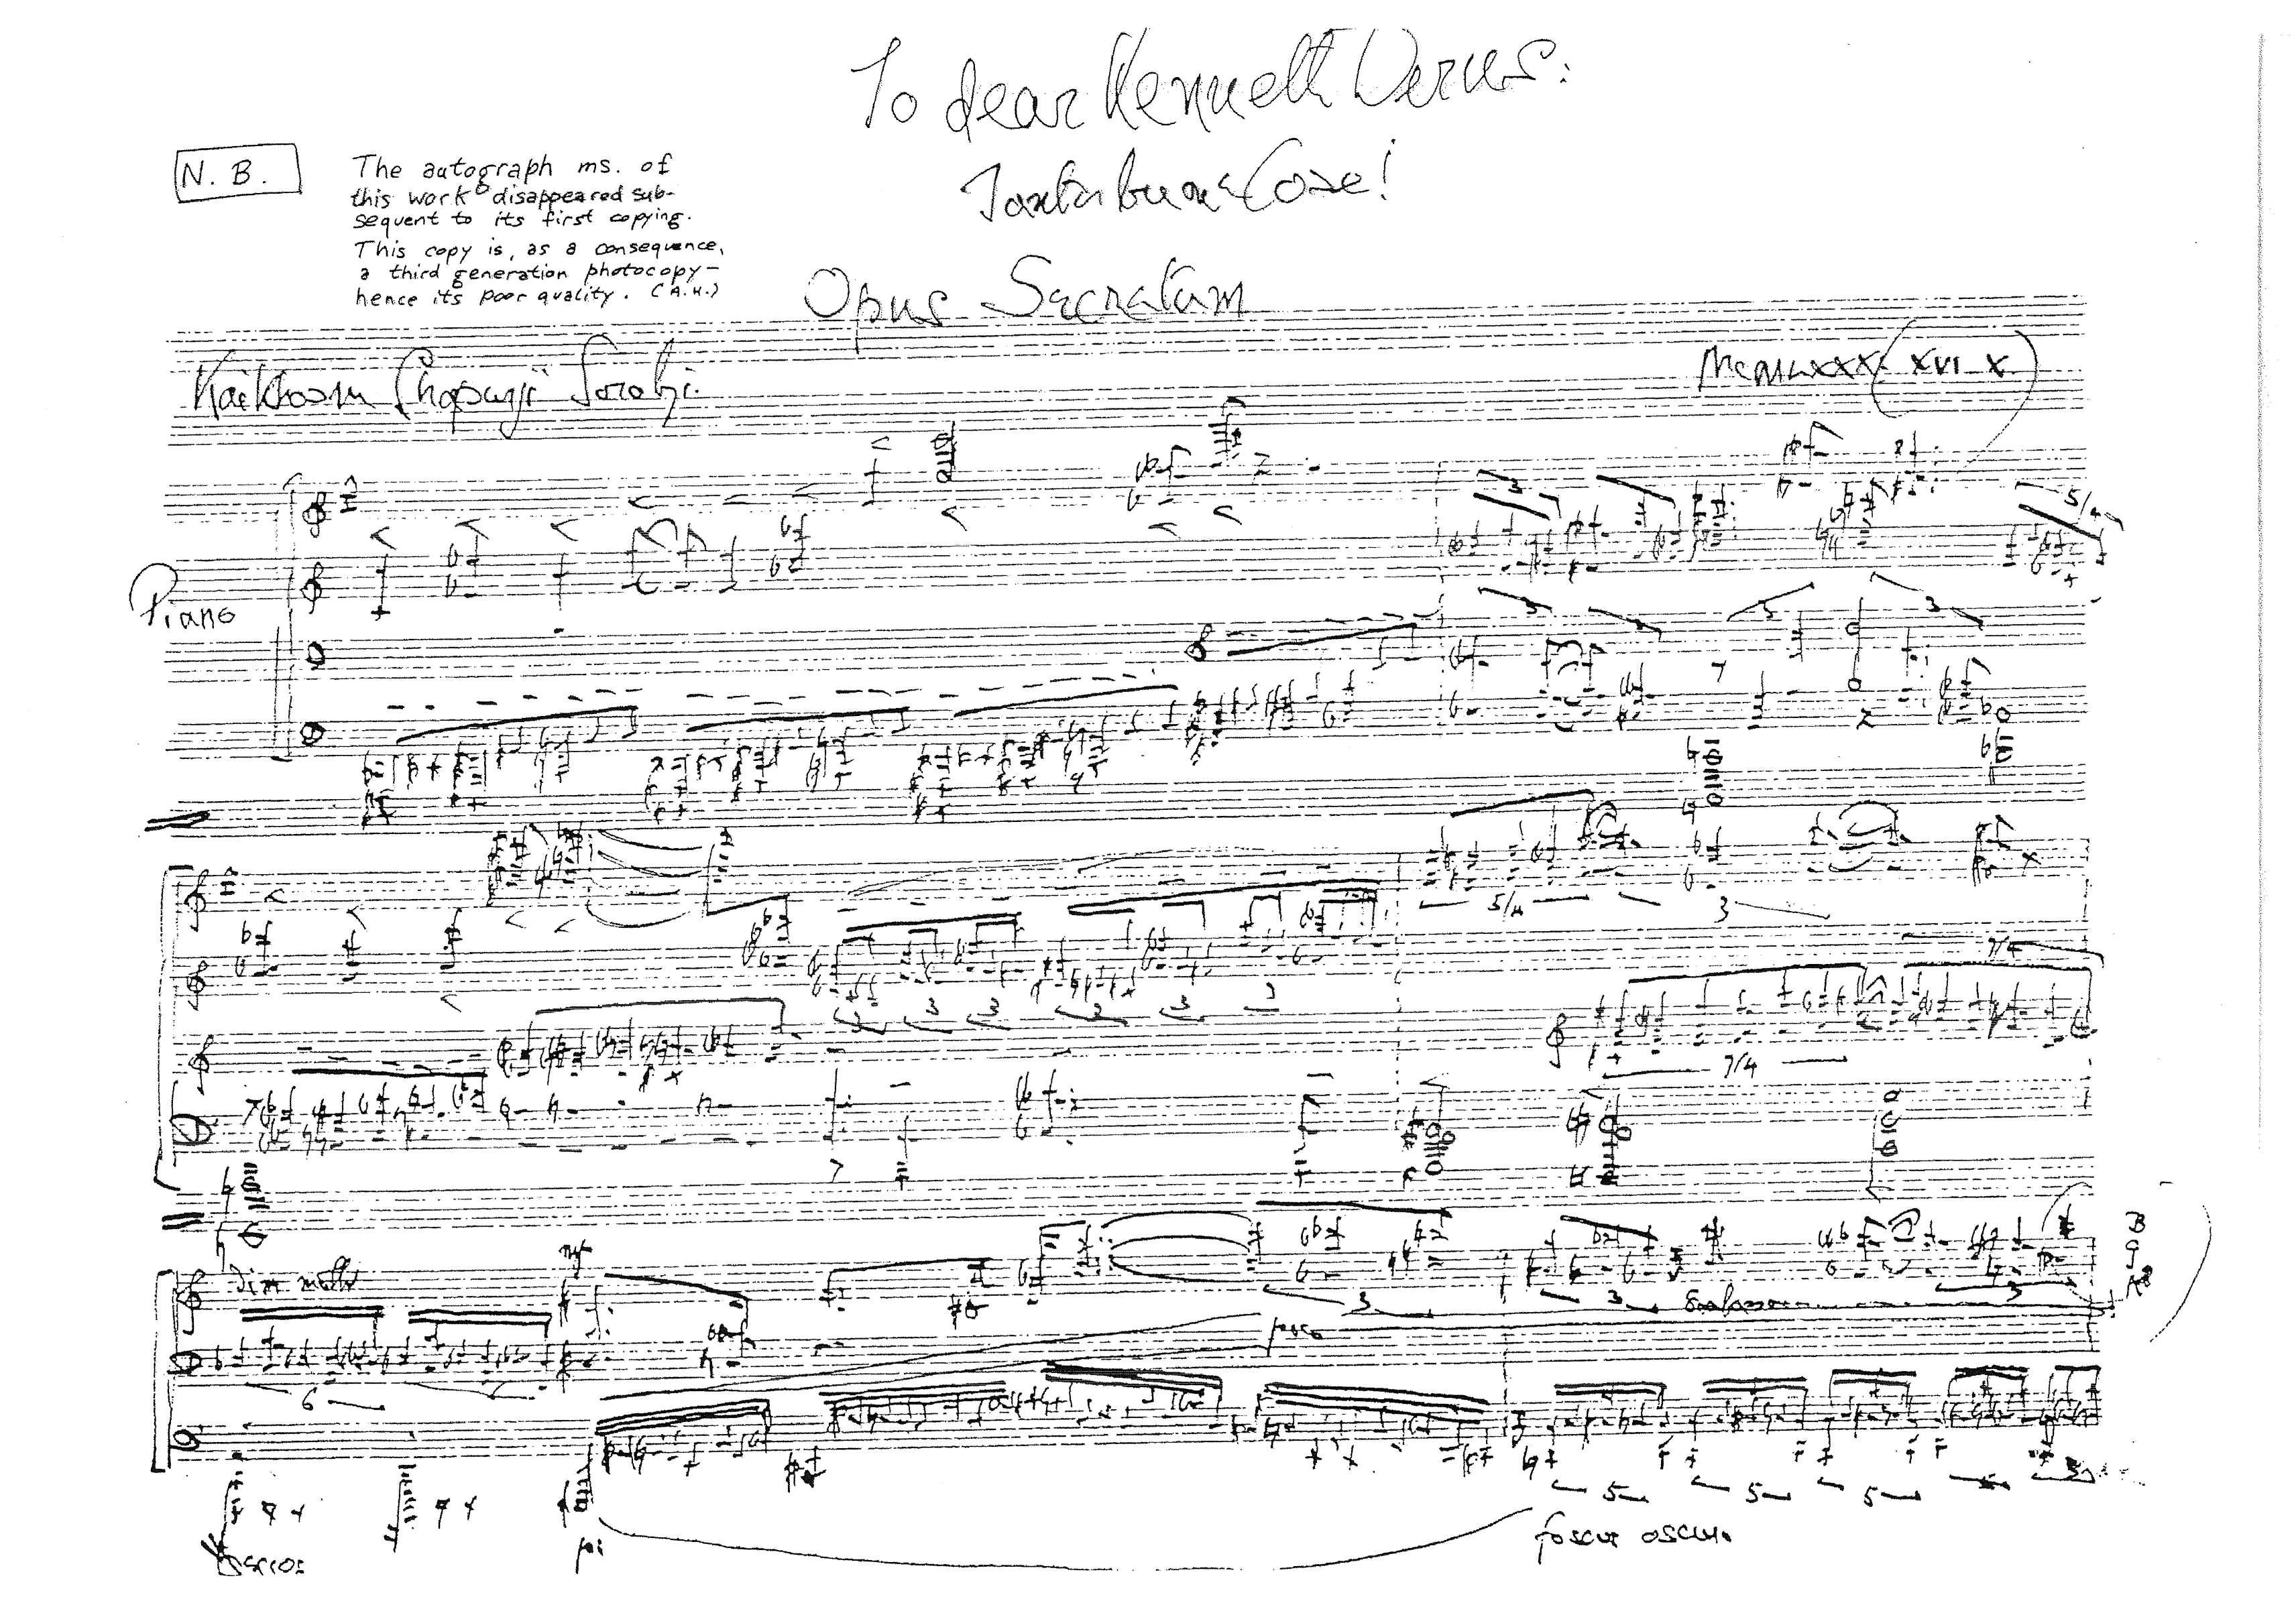 To dear Kenneth Derus:
Tante buone Cose!
N. B.
The autograph ms. of
this work disappeared sub-
sequent to its first copying.
This copy is, as a consequence,
a third generation photocopy –
hence its poor quality. (A.H.)
Opus Secretum
Kaikhosru Shapurji Sorabji.
Piano
3
5/4
3
3
3
5/4
3
7/4
3
3
3
3
3
7/4
dim molto
poco
3
3
3
6
5
5
5
poi
foscu oscuro